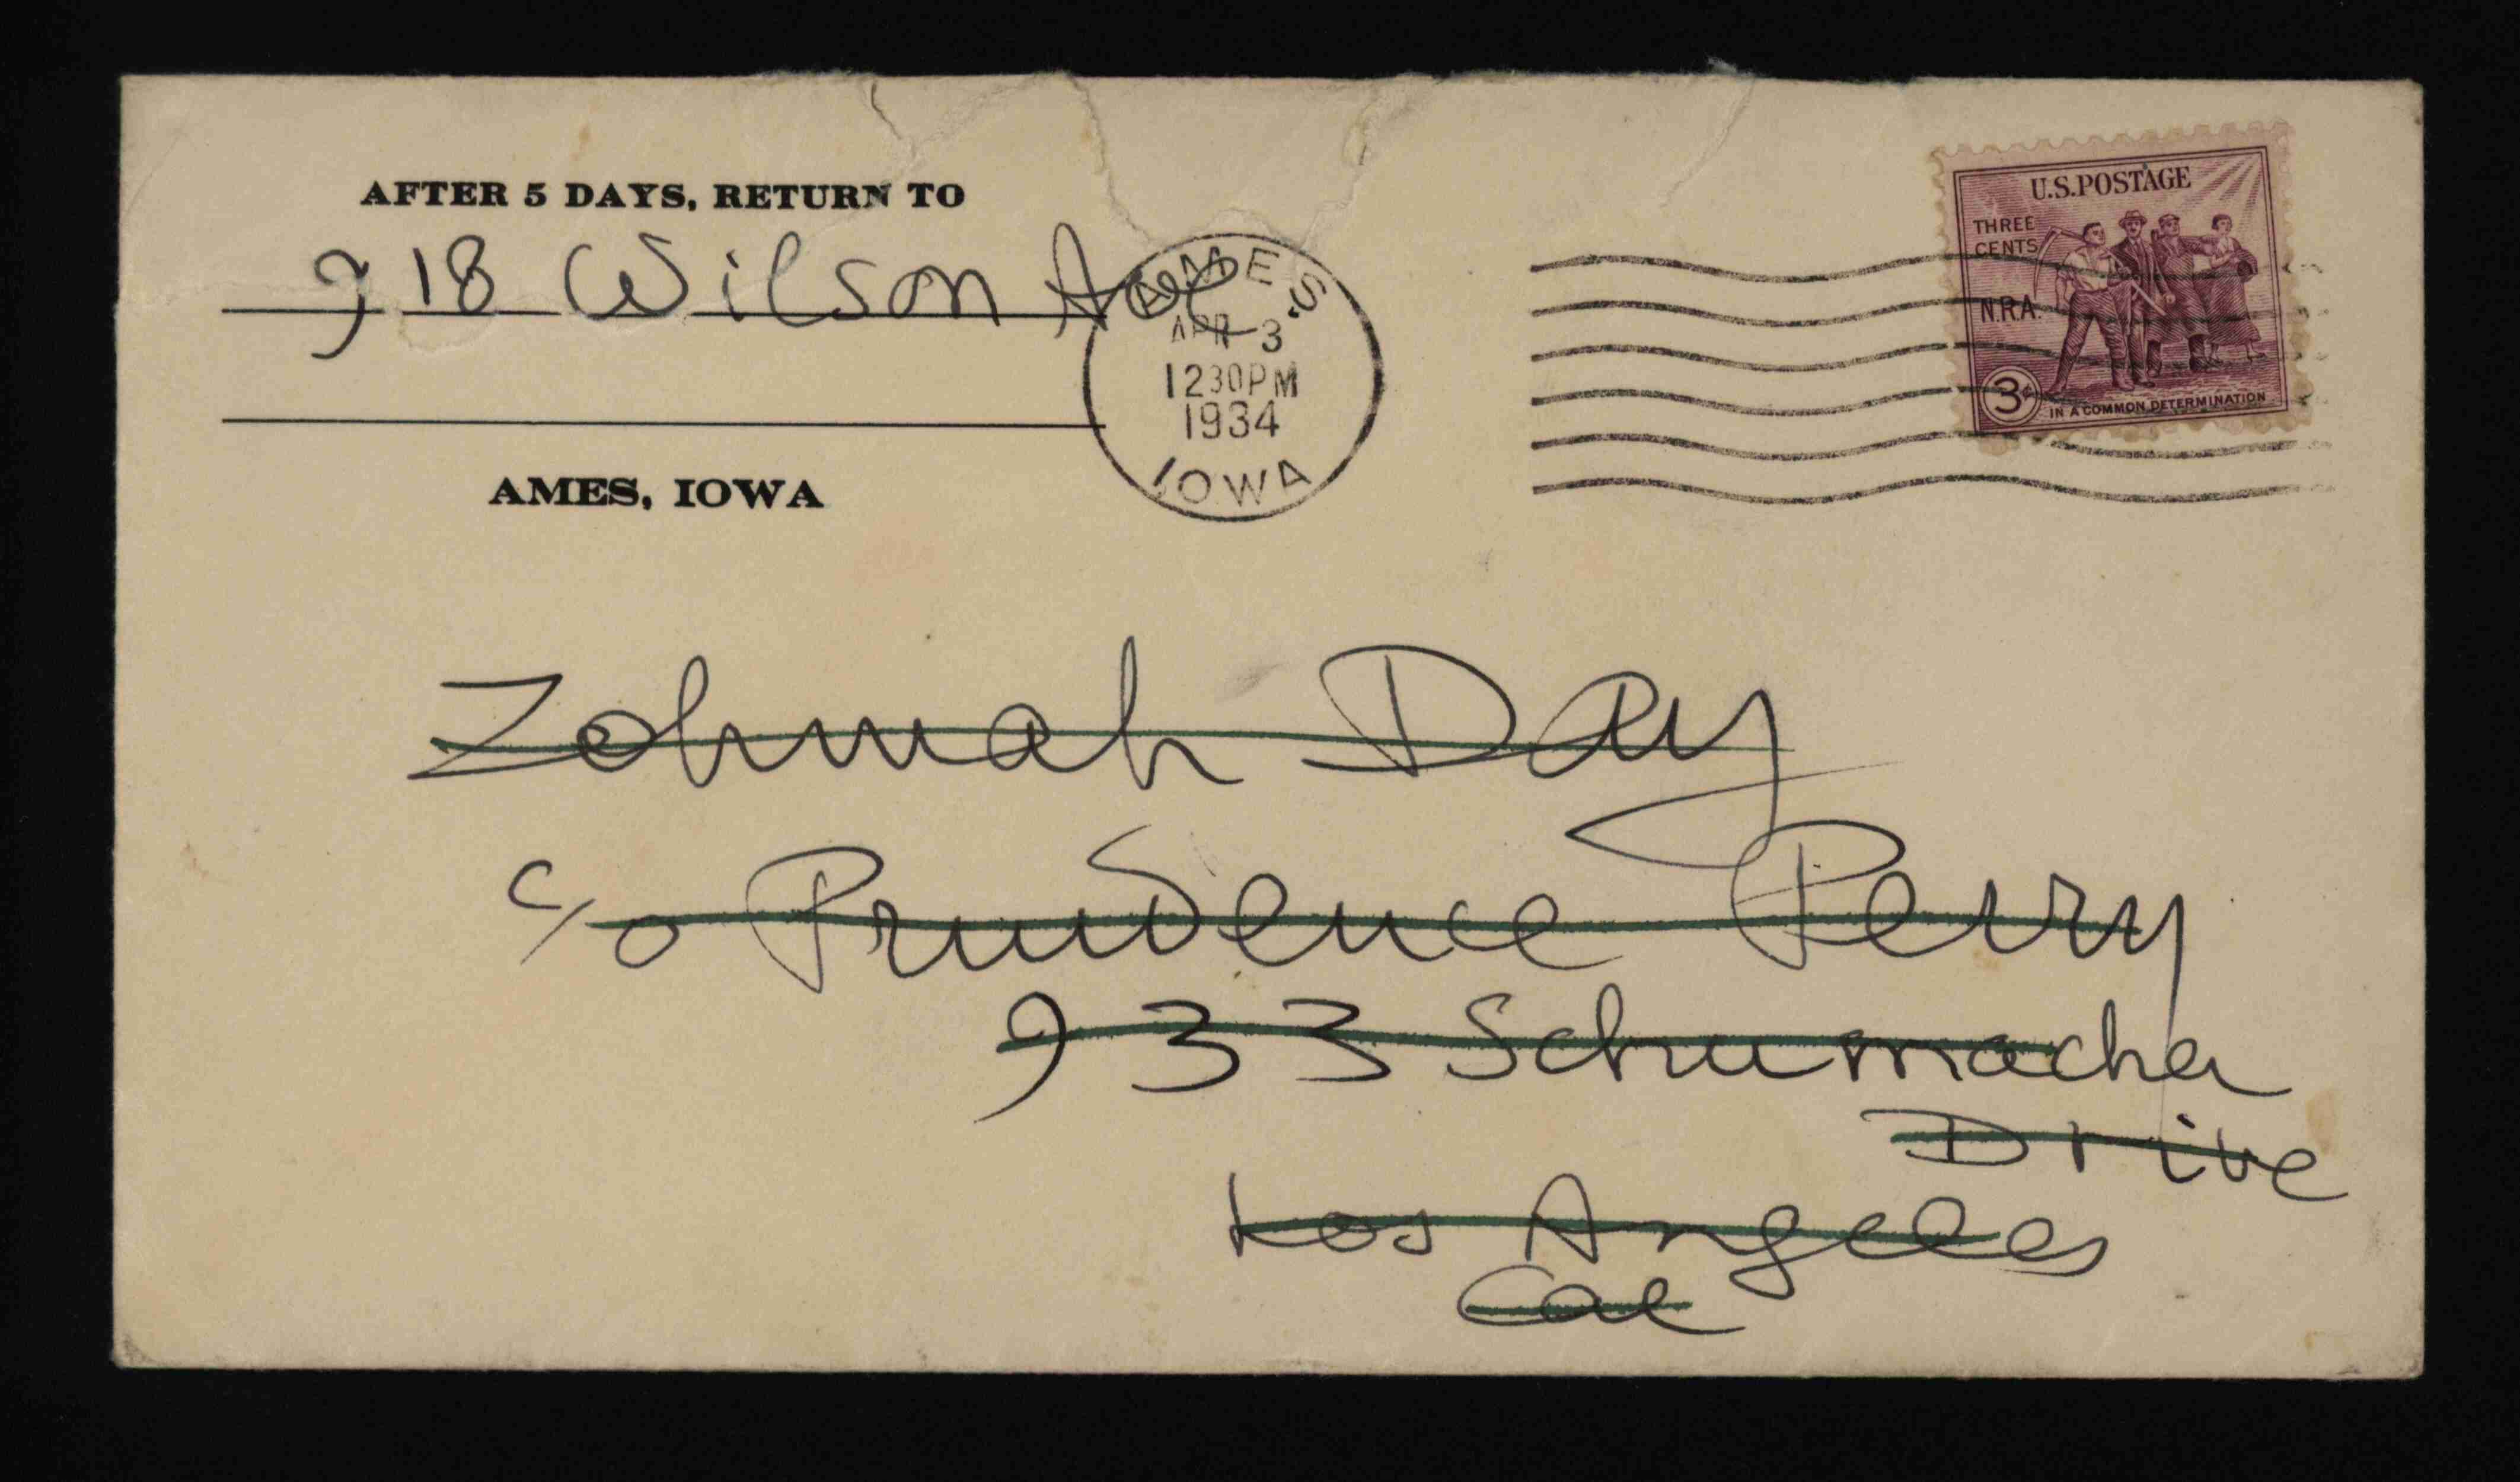 AFTER 5 DAYS, RETURN TO
918 Wilson Ave
AMES, IOWA
AMES
APR 3
1230PM
1934
IOWA
U.S. POSTAGE
THREE
CENTS
N.R.A.
3¢
IN A COMMON DETERMINATION
Zohmah Day
c/o Prudence Perry
933 Schumacher
Drive
Los Angeles
Cal